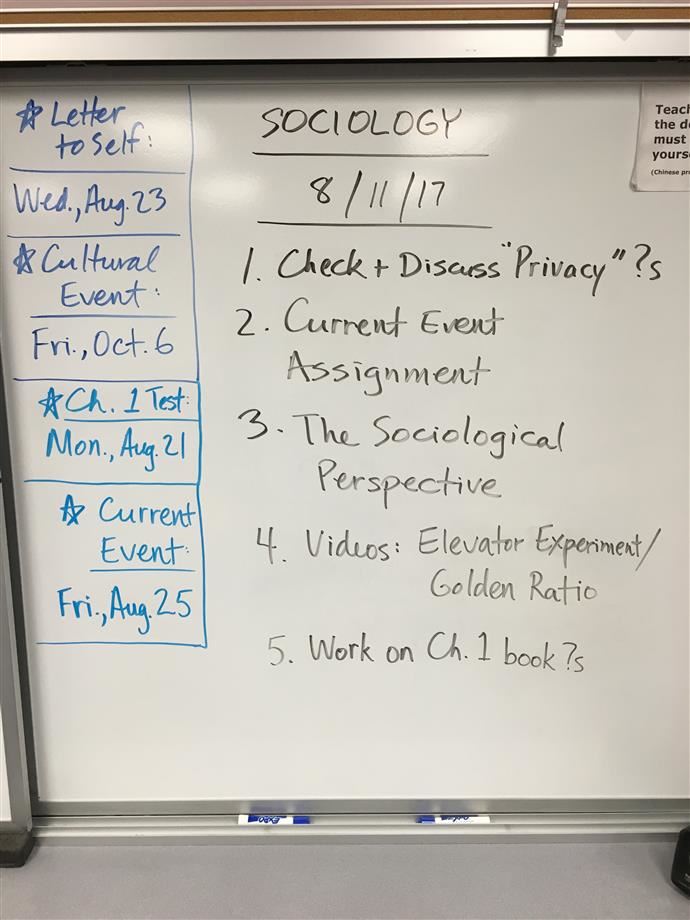 ☆ Letter
to Self:
Wed., Aug. 23
☆ Cultural
Event:
Fri., Oct. 6
☆ Ch. 1 Test:
Mon., Aug. 21
☆ Current
Event:
Fri., Aug. 25
SOCIOLOGY
8/11/17
1. Check + Discuss "Privacy" ?s
2. Current Event
Assignment
3. The Sociological
Perspective
4. Videos: Elevator Experiment/
Golden Ratio
5. Work on Ch. 1 book ?s
Teac
the d
must
yours
(Chinese pr
EXPO